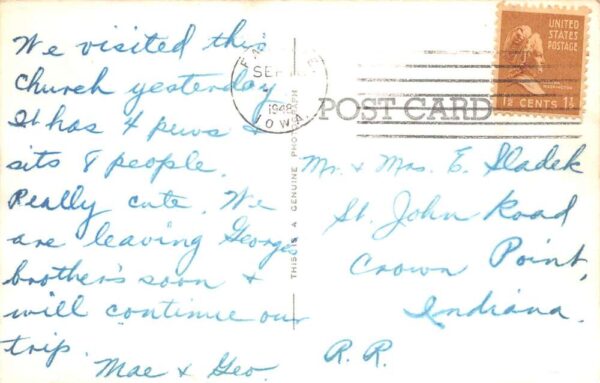 We visited this
church yesterday
It has 4 pews &
sits 8 people.
Really cute. We
are leaving George
brother's soon &
will continue our
trip.
Mae & Geo.
SEP
1948
IOWA
UNITED
STATES
POSTAGE
1½ CENTS 1½
POST CARD
THIS IS A GENUINE PHOTOGRAPH
Mr. & Mrs. E. Sladek
St. John Road
Crown Point,
Indiana.
R.R.